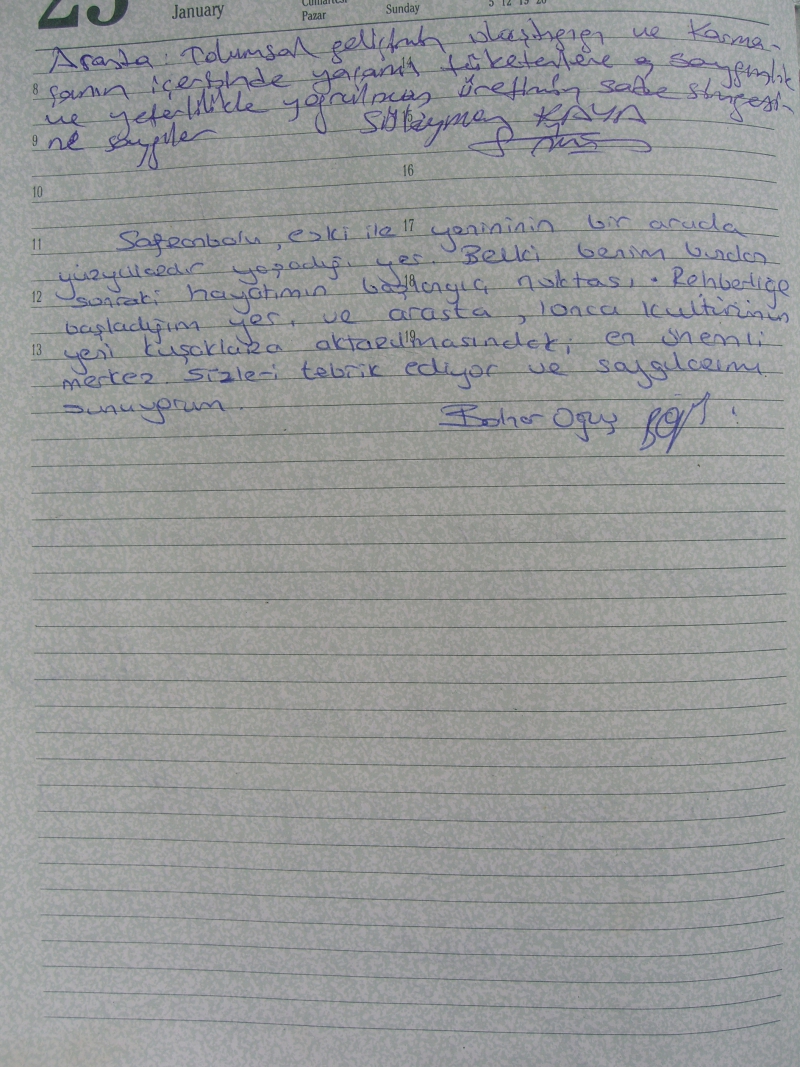 23 January Cumartesi Pazar Sunday 5 12 19 26
Arasta: Toplumsal gelişimin ulaştığı ve Karma-
8 şanın içerisinde yaşamı tüketenlere o saygınlık
ve yeterlilikle yoğrulmuş üretimin sade simgesi-
9 ne saygılar Süleyman KAYA
16
10
11 Safranbolu, eski ile 17 yenininin bir arada
yüzyıllardır yaşadığı yer. Belki benim bundan
12 sonraki hayatımın başlangıç noktası. Rehberliğe
başladığım yer, ve arasta, lonca kültürünün
13 yeni kuşaklara aktarılmasındaki en önemli
merkez. Sizleri tebrik ediyor ve saygılarımı
sunuyorum.
Bahar Oğuş